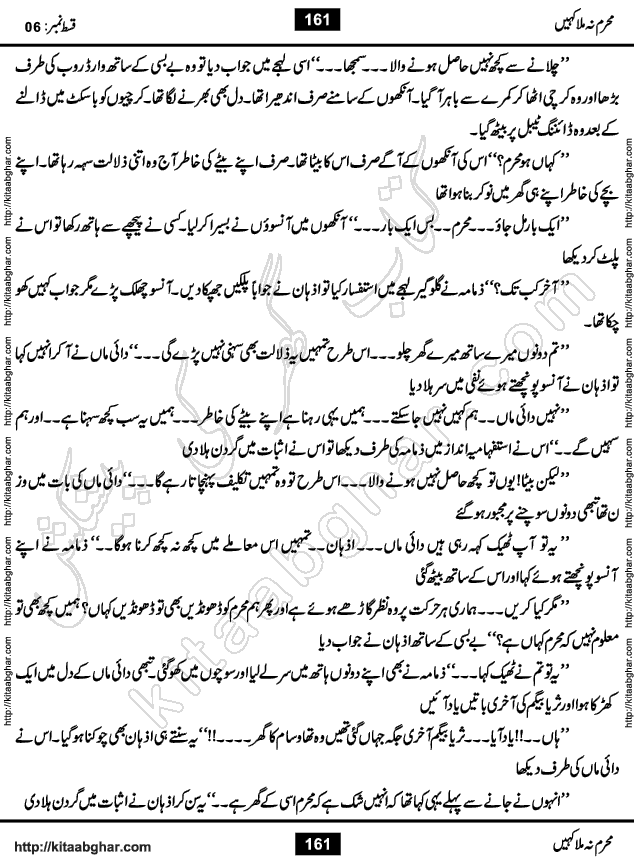 محرم نہ ملا کہیں 161 قسط نمبر: 06
’’چلانے سے کچھ نہیں حاصل ہونے والا۔۔۔سمجھا۔۔۔‘‘ اسی لہجے میں جواب دیا تو وہ بے بسی کے ساتھ وارڈ روب کی طرف
بڑھا اور وہ کرچی اٹھا کر کمرے سے باہر آ گیا۔ آنکھوں کے سامنے صرف اندھیرا تھا۔ دل بھی بھرنے لگا تھا۔ کرچیوں کو باسکٹ میں ڈالنے
کے بعد وہ ڈائننگ ٹیبل پر بیٹھ گیا۔
’’کہاں ہو محرم؟‘‘ اس کی آنکھوں کے آگے صرف اس کا بیٹا تھا۔ صرف اپنے بیٹے کی خاطر آج وہ اتنی ذلالت سہہ رہا تھا۔ اپنے
بچے کی خاطر اپنے ہی گھر میں نوکر بنا ہوا تھا
’’ایک بار مل جاؤ۔۔۔محرم۔۔بس ایک بار۔۔۔‘‘ آنکھوں میں آنسوؤں نے بسیرا کر لیا۔ کسی نے پیچھے سے ہاتھ رکھا تو اس نے
پلٹ کر دیکھا
’’آخر کب تک؟‘‘ ذمامہ نے گلوگیر لہجے میں استفسار کیا تو اذہان نے جواباً پلکیں جھپکا دیں۔ آنسو چھلک پڑے مگر جواب کہیں کھو
چکا تھا۔
’’تم دونوں میرے ساتھ میرے گھر چلو۔۔۔اس طرح تمہیں یہ ذلالت بھی سہنی نہیں پڑے گی۔۔۔‘‘ دائی ماں نے آ کر انہیں کہا
تو اذہان نے آنسو پونچھتے ہوئے نفی میں سر ہلا دیا
’’نہیں دائی ماں۔۔ہم کہیں نہیں جا سکتے۔۔۔ہمیں یہی رہنا ہے اپنے بیٹے کی خاطر۔۔۔ہمیں یہ سب کچھ سہنا ہے۔۔اور ہم
سہیں گے۔۔‘‘ اس نے استفہامیہ انداز میں ذمامہ کی طرف دیکھا تو اس نے اثبات میں گردن ہلا دی
’’لیکن بیٹا! یوں تو کچھ حاصل نہیں ہونے والا۔۔۔اس طرح تو وہ تمہیں تکلیف پہنچاتا رہے گا۔۔۔‘‘ دائی ماں کی بات میں وز
ن تھا تبھی دونوں سوچنے پر مجبور ہو گئے
’’یہ تو آپ ٹھیک کہہ رہی ہیں دائی ماں۔۔۔اذہان۔۔تمہیں اس معاملے میں کچھ نہ کچھ کرنا ہوگا۔۔‘‘ ذمامہ نے اپنے
آنسو پونچھتے ہوئے کہا اور اس کے ساتھ بیٹھ گئی
’’مگر کیا کریں۔۔۔ہماری ہر حرکت پر وہ نظر گاڑھے ہوئے ہے اور پھر ہم محرم کو ڈھونڈیں بھی تو ڈھونڈیں کہاں؟ ہمیں کچھ بھی تو
معلوم نہیں کہ محرم کہاں ہے؟‘‘ بے بسی کے ساتھ اذہان نے جواب دیا
’’یہ تو تم نے ٹھیک کہا۔۔۔‘‘ ذمامہ نے بھی اپنے دونوں ہاتھ میں سر لے لیا اور سوچوں میں کھو گئی۔ تبھی دائی ماں کے دل میں ایک
کھڑکا ہوا اور ثریا بیگم کی آخری باتیں یاد آئیں
’’ہاں۔۔!! یاد آیا۔۔۔ثریا بیگم آخری جگہ جہاں گئی تھیں وہ تھا وسام کا گھر۔۔۔۔!!‘‘ یہ سنتے ہی اذہان بھی چوکنا ہو گیا۔ اس نے
دائی ماں کی طرف دیکھا
’’انہوں نے جانے سے پہلے یہی کہا تھا کہ انہیں شک ہے کہ محرم اسی کے گھر ہے۔۔‘‘ یہ سن کر اذہان نے اثبات میں گردن ہلا دی
محرم نہ ملا کہیں 161 http://kitaabghar.com
http://kitaabghar.com http://kitaabghar.com http://kitaabghar.com http://kitaabghar.com http://kitaabghar.com http://kitaabghar.com
http://kitaabghar.com http://kitaabghar.com http://kitaabghar.com http://kitaabghar.com http://kitaabghar.com http://kitaabghar.com
کتاب گھر کی پیشکش
kitaabghar.com